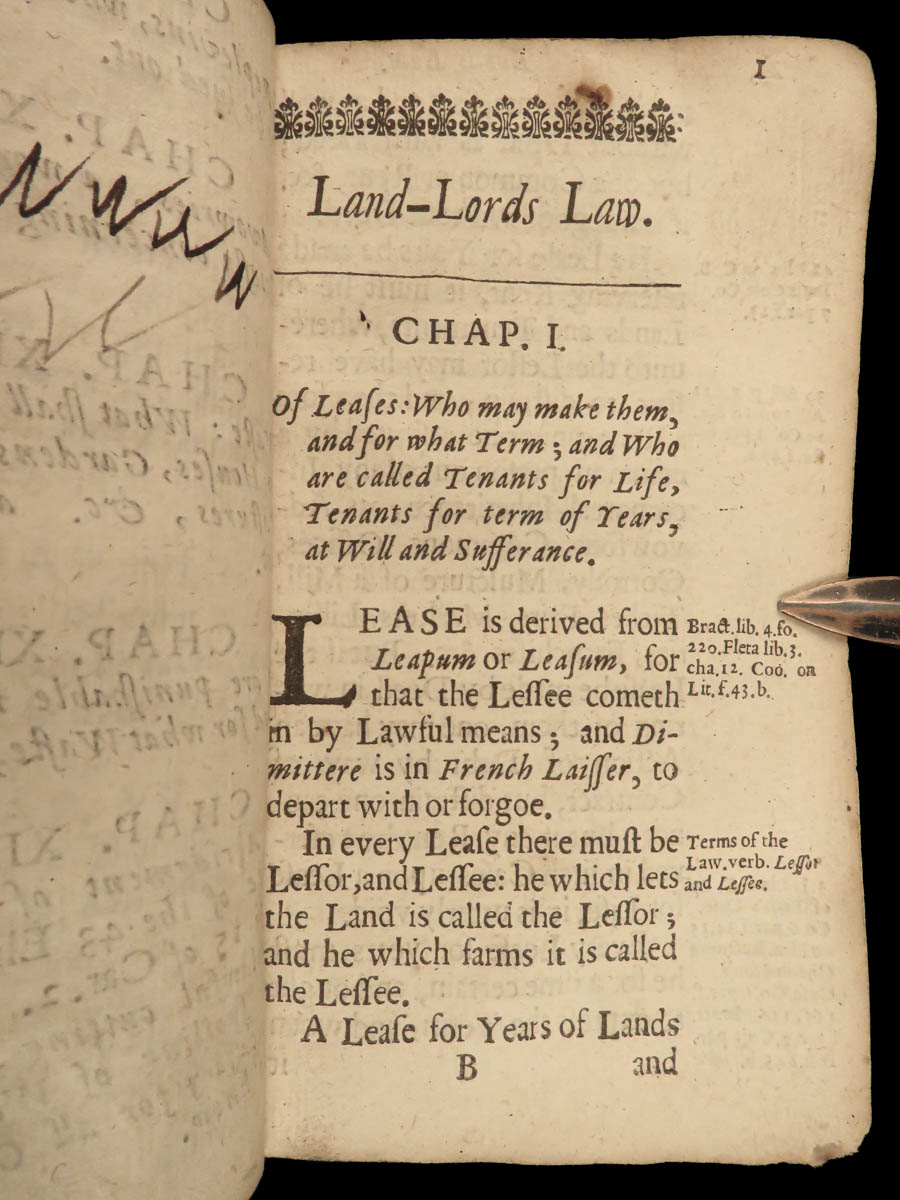 1
Land-Lords Law.
CHAP. I.
Of Leaſes: Who may make them,
and for what Term; and Who
are called Tenants for Life,
Tenants for term of Years,
at Will and Sufferance.
LEASE is derived from
Leapum or Leaſum, for
that the Leſſee cometh
in by Lawful means; and Di-
mittere is in French Laiſſer, to
depart with or forgoe.
Bract. lib. 4. fo.
220. Fleta lib. 3.
cha. 12. Coo. on
Lit. f. 43. b.
In every Leaſe there muſt be
Leſſor, and Leſſee: he which lets
the Land is called the Leſſor;
and he which farms it is called
the Leſſee.
Terms of the
Law. verb. Leſſor
and Leſſee.
A Leaſe for Years of Lands
B and